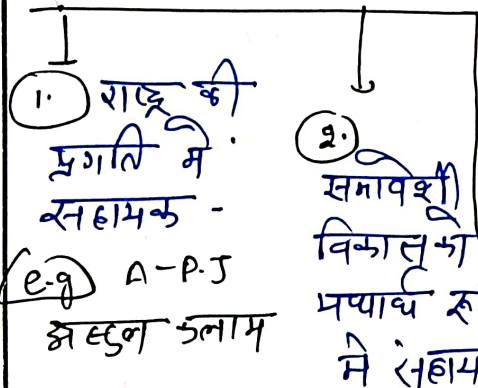 1. राष्ट्र की
प्रगति में
सहायक -
e.g A-P.J
अब्दुल कलाम
2.
समावेशी
विकास को
में सहाय